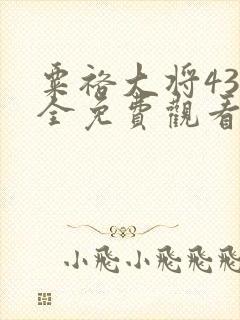 粟裕大将43
全免費觀看
小飛小飛飛飛